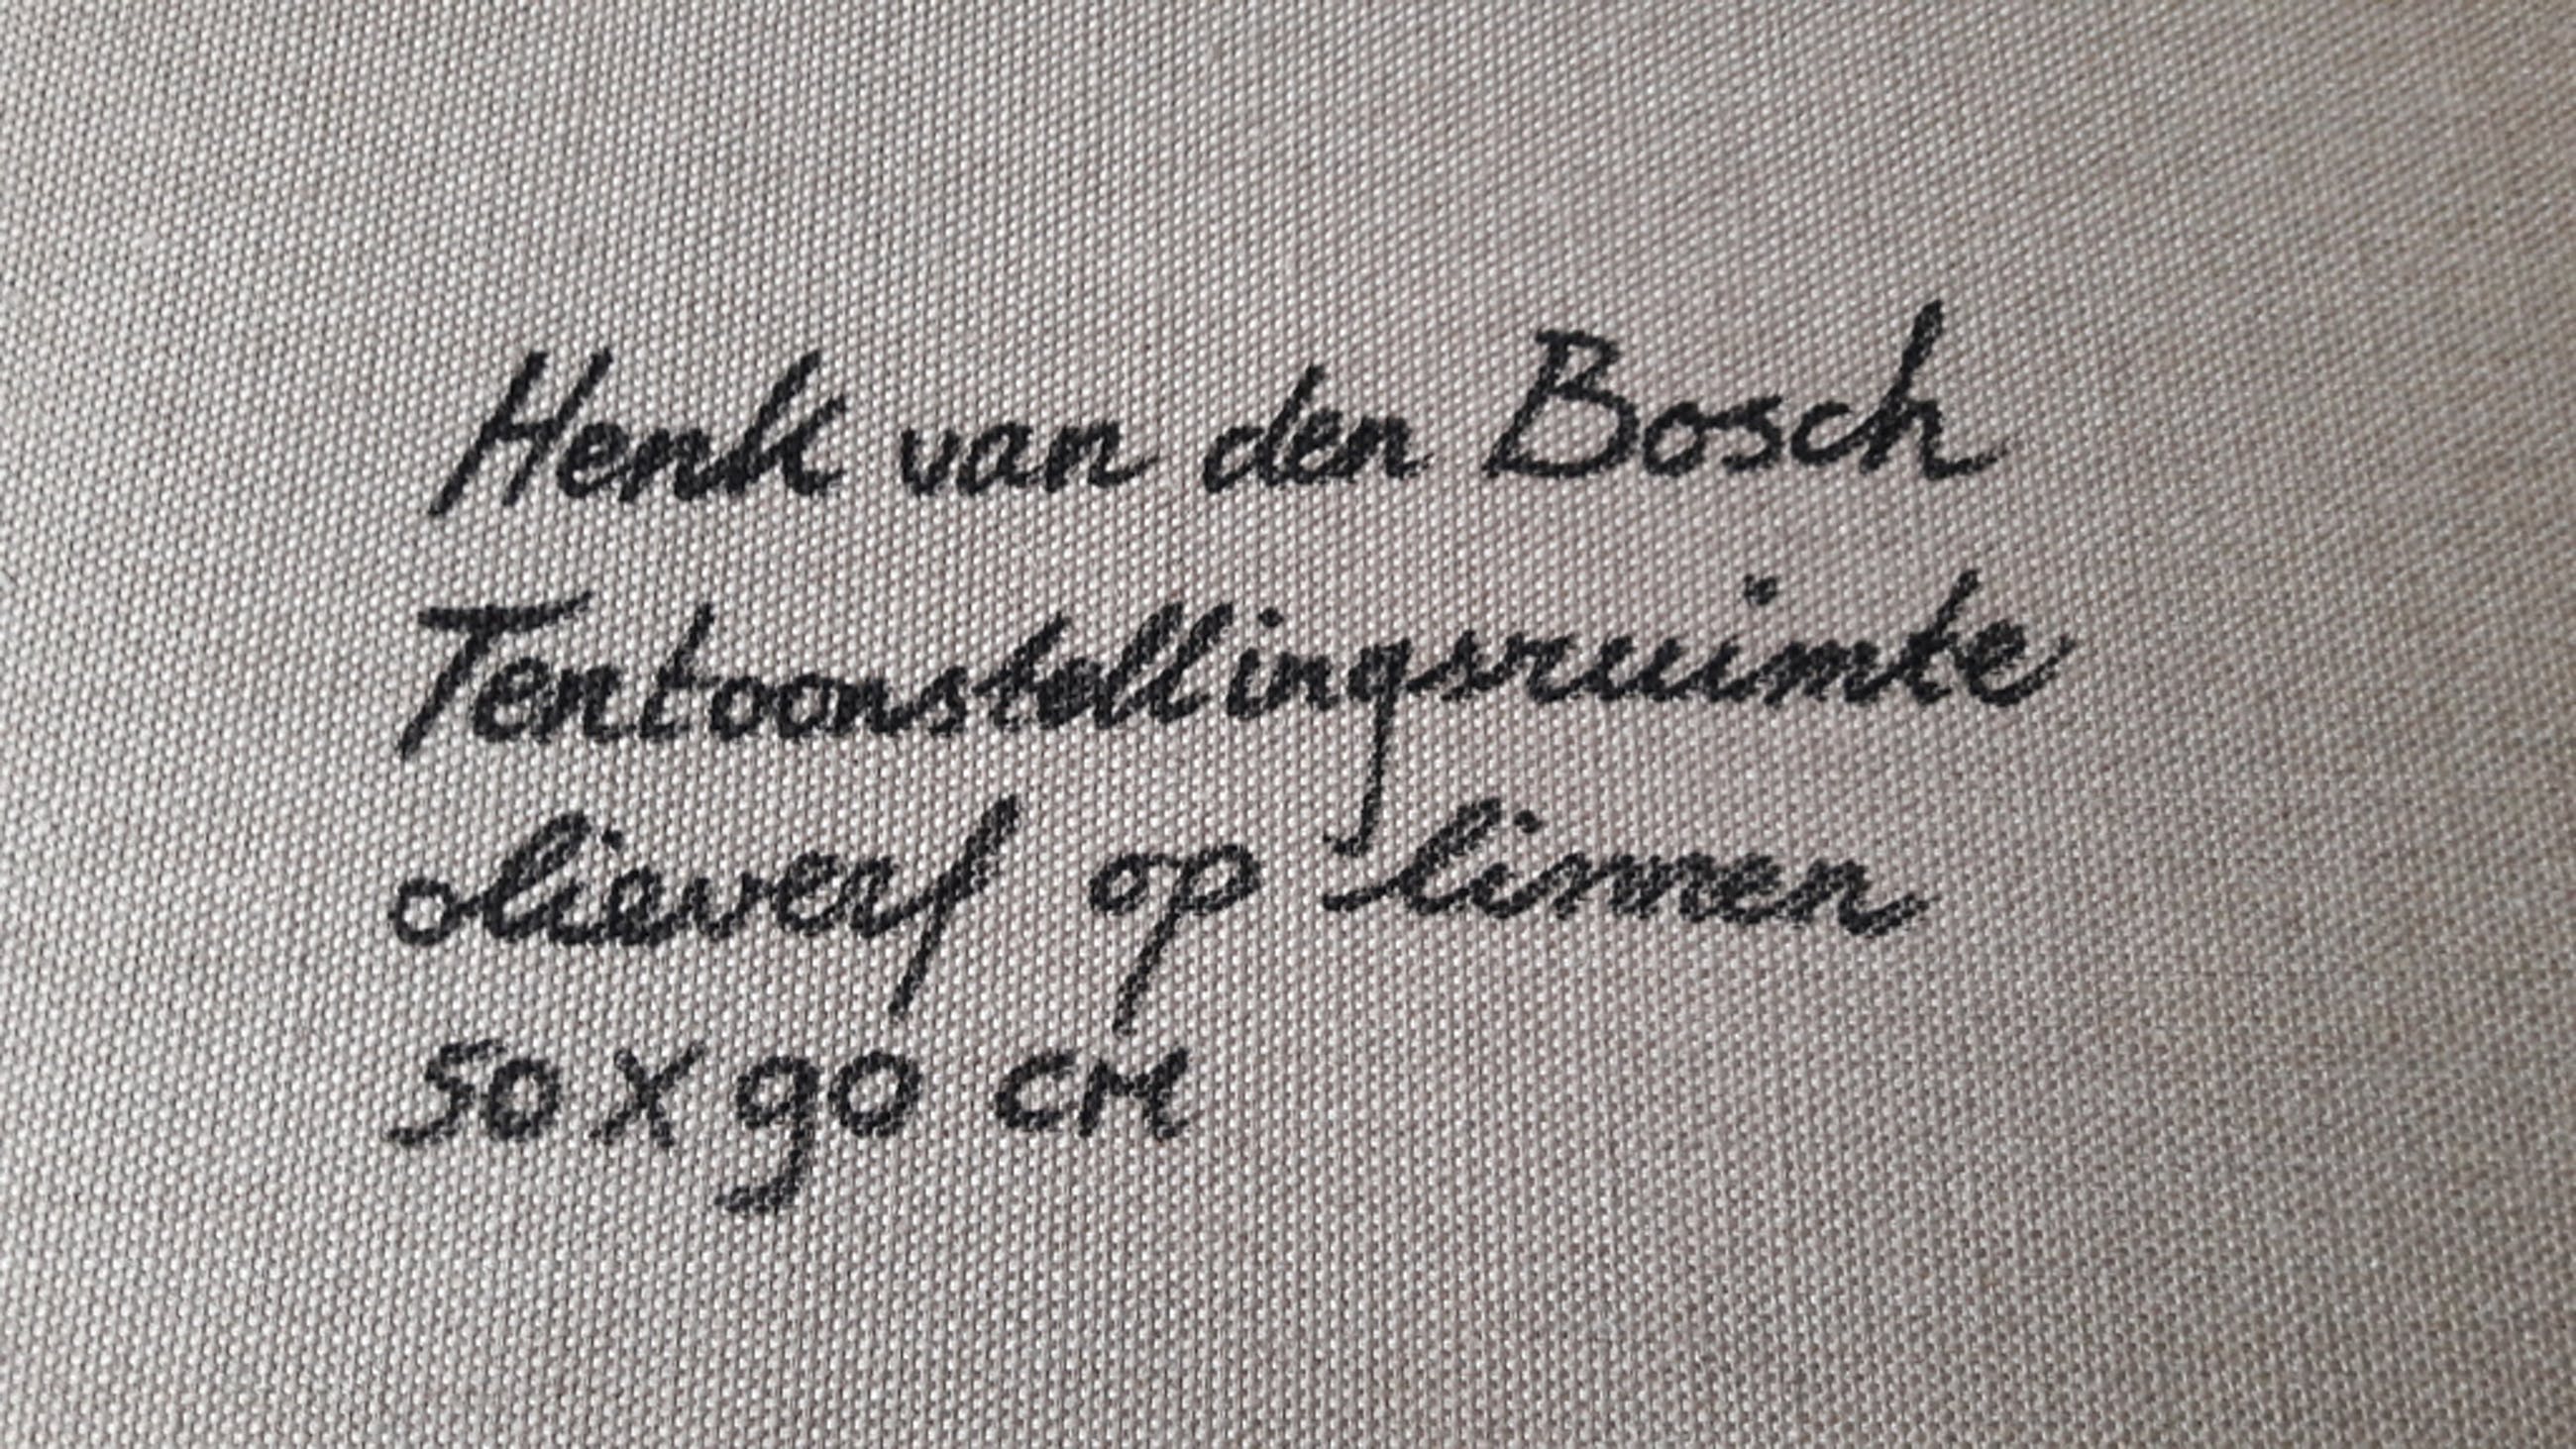 Henk van den Bosch
Tentoonstellingsruimte
olieverf op linnen
50 x 90 cm